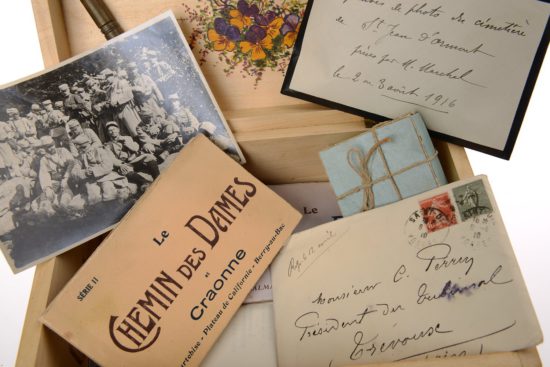 de photo du cimetière
de St Jean d'Ormont
prises par M. Marchal
le 2 ou 3 août 1916
SÉRIE II
Le
CHEMIN DES DAMES
"
Craonne
Plateau de Californie - Berry-au-Bac
Le
Monsieur C. Perrin
Président du Tribunal
Trévoux